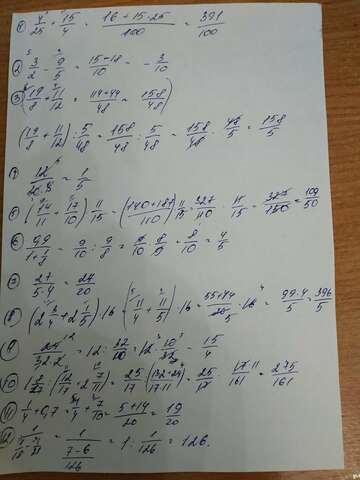 1) 4/25 + 15/4 = (16 + 15·25)/100 = 391/100
2) 3/2 - 9/5 = (15-18)/10 = - 3/10
3) (19/8 + 11/12) = (114+44)/48 = 158/48
(19/8 + 11/12) : 5/48 = 158/48 : 5/48 = 158/48 · 48/5 = 158/5
4) 12/20·3 = 1/5
5) (14/11 + 17/10) 11/15 = (140+187)/110 · 11/15 = 327/110 · 11/15 = 109/50
6) 9,9/1+1/9 = 9/10 : 9/8 = 9/10 · 8/9 = 8/10 = 4/5
7) 27/5·4 = 27/20
8) (2 3/4 + 2 1/5) · 16 = (11/4 + 11/5) · 16 = (55+44)/20 · 16 = 99·4/5 = 396/5
9) = 12 : 32/10 = 12 · 10/32 = 15/4
10) = 25/17 · 17·11/161 = 275/161
11) 1/4 + 0,7 = 1/4 + 7/10 = (5+14)/20 = 19/20
12) 1/(1/18 - 1/21) = 1/((7-6)/126) = 1 : 1/126 = 126.